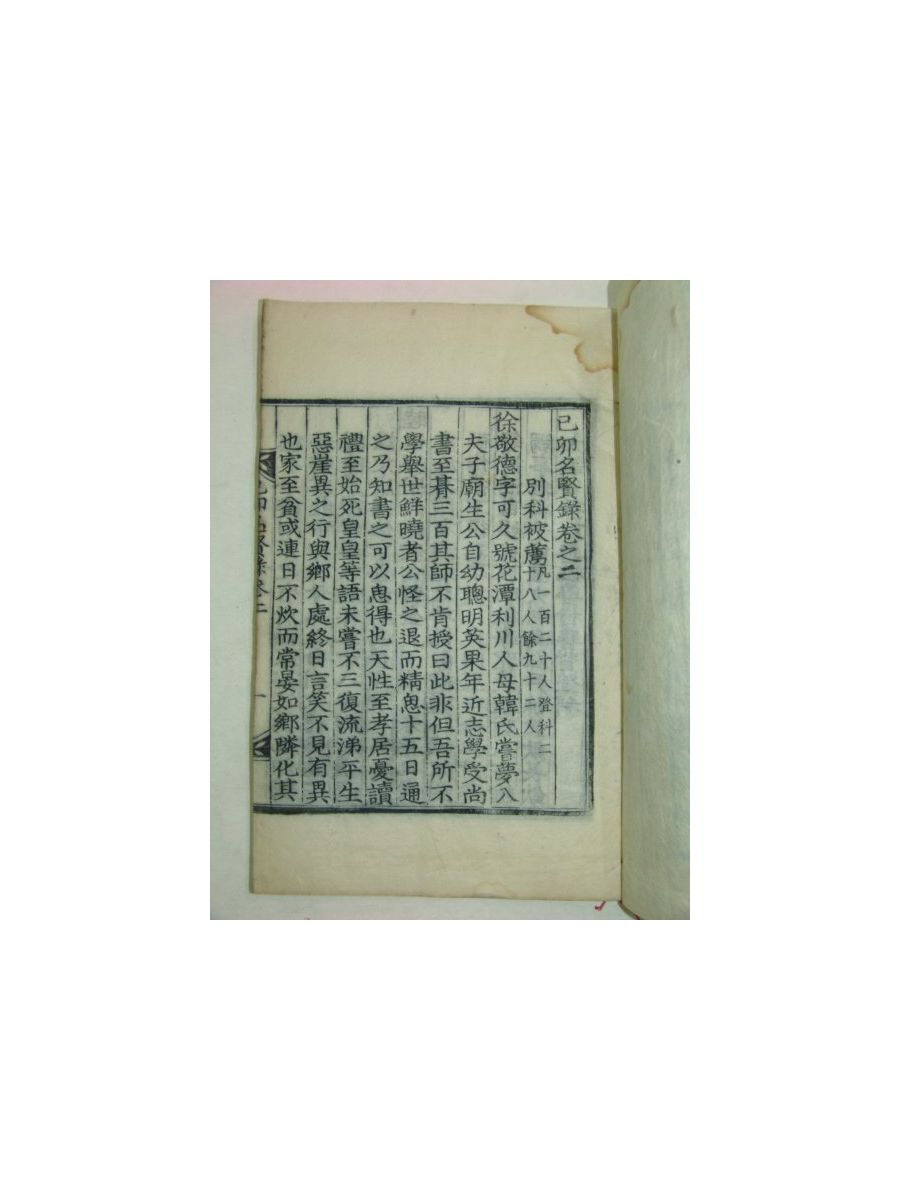 己卯名賢錄卷之二
別科被薦凡一百二十人登科二十八人餘九十二人
徐敬德字可久號花潭利川人母韓氏嘗夢入
夫子廟生公自幼聰明英果年近志學受尚
書至朞三百其師不肯授曰此非但吾所不
學舉世鮮曉者公怪之退而精思十五日通
之乃知書之可以思得也天性至孝居憂讀
禮至始死皇皇等語未嘗不三復流涕平生
惡崖異之行與鄉人處終日言笑不見有異
也家至貧或連日不炊而常晏如鄉隣化其
己卯名賢錄卷二
一